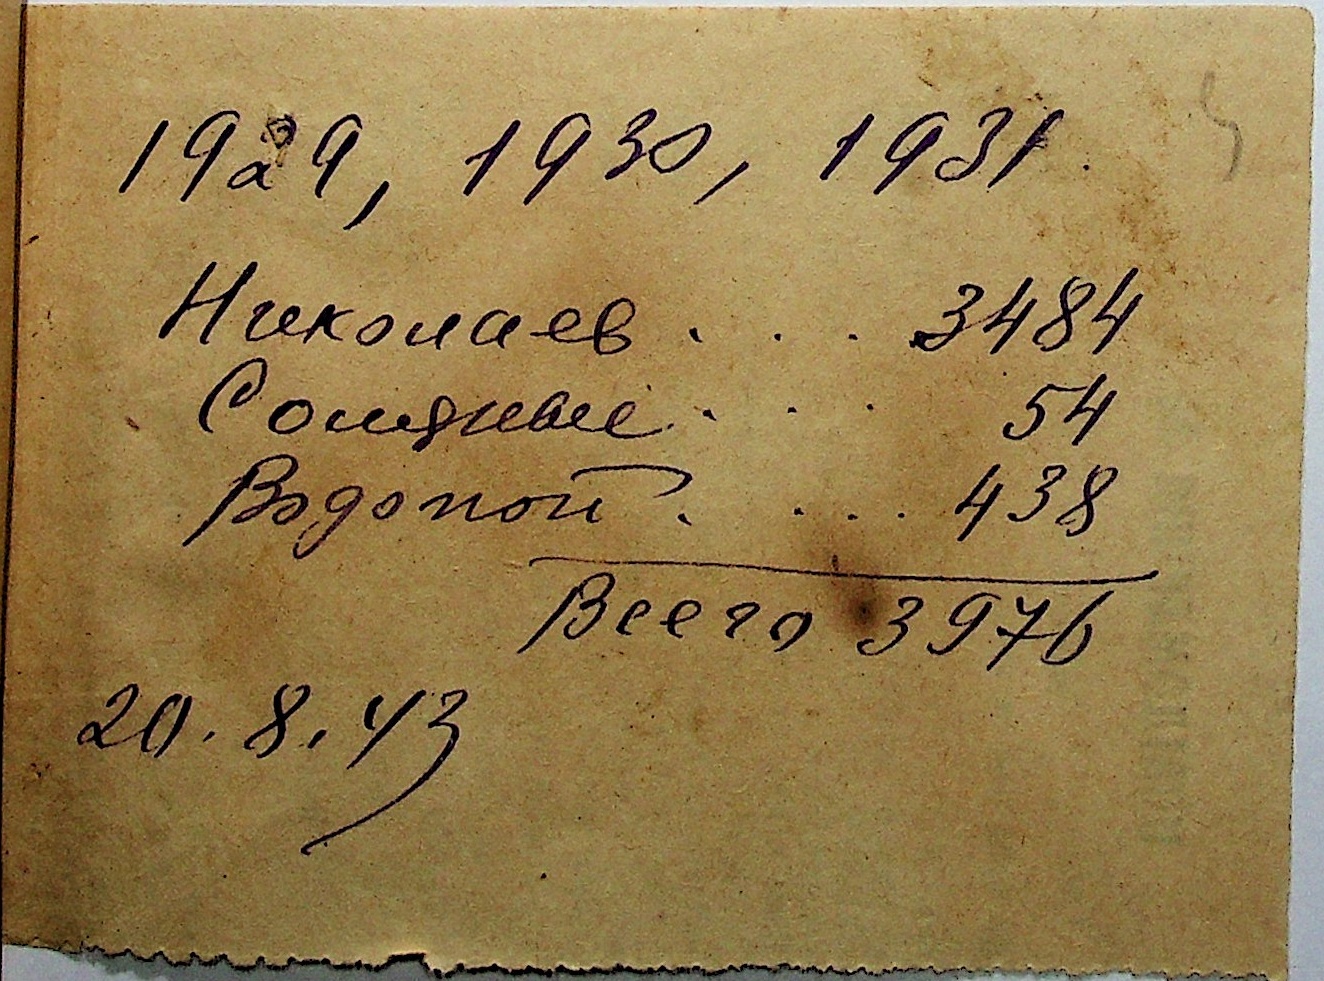 1929, 1930, 1931.
Николаев . . . 3484
Соляные . . . 54
Водопой . . . . 438
Всего 3976
20.8.43